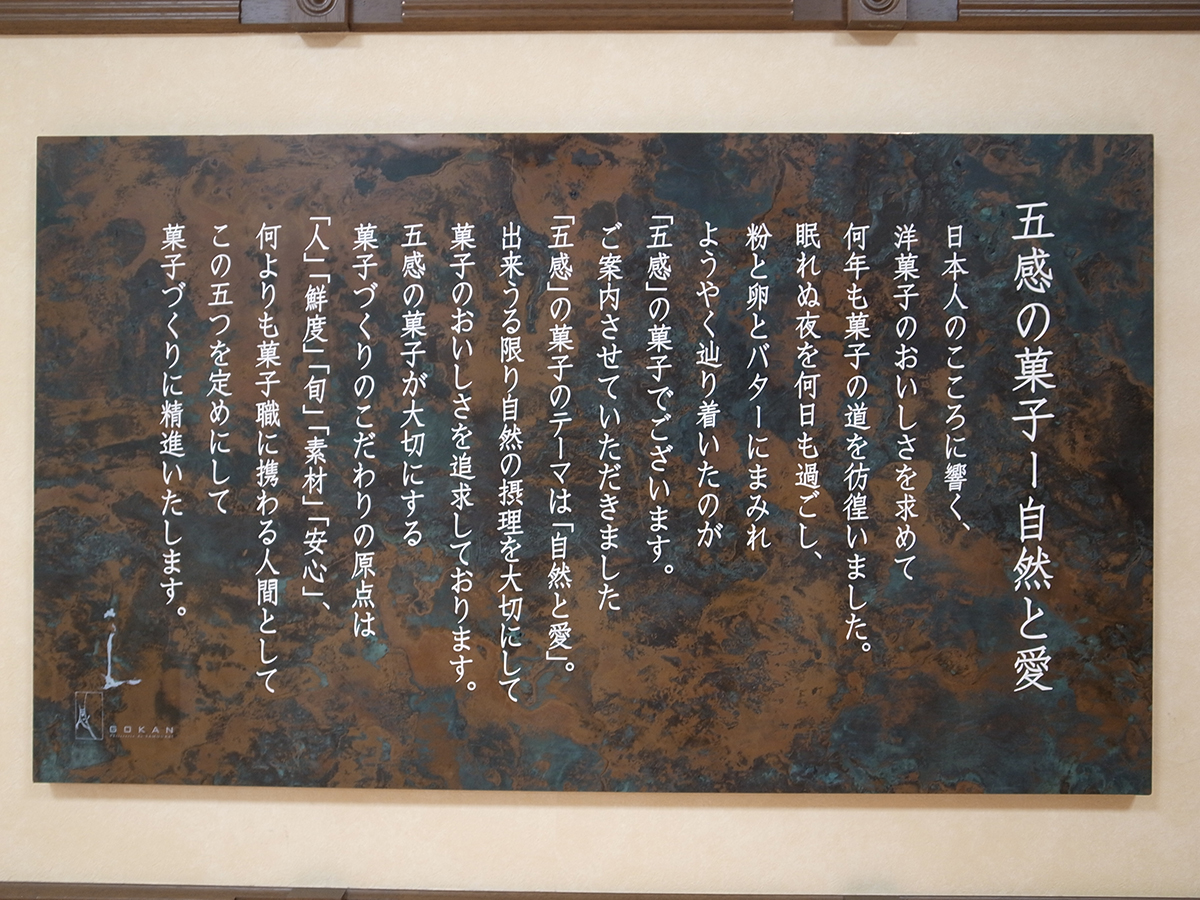 五感の菓子ー自然と愛
日本人のこころに響く、
洋菓子のおいしさを求めて
何年も菓子の道を彷徨いました。
眠れぬ夜を何日も過ごし、
粉と卵とバターにまみれ
ようやく辿り着いたのが
「五感」の菓子でございます。
ご案内させていただきました
「五感」の菓子のテーマは「自然と愛」。
出来うる限り自然の摂理を大切にして
菓子のおいしさを追求しております。
五感の菓子が大切にする
菓子づくりのこだわりの原点は
「人」「鮮度」「旬」「素材」「安心」、
何よりも菓子職に携わる人間として
この五つを定めにして
菓子づくりに精進いたします。
GOKAN